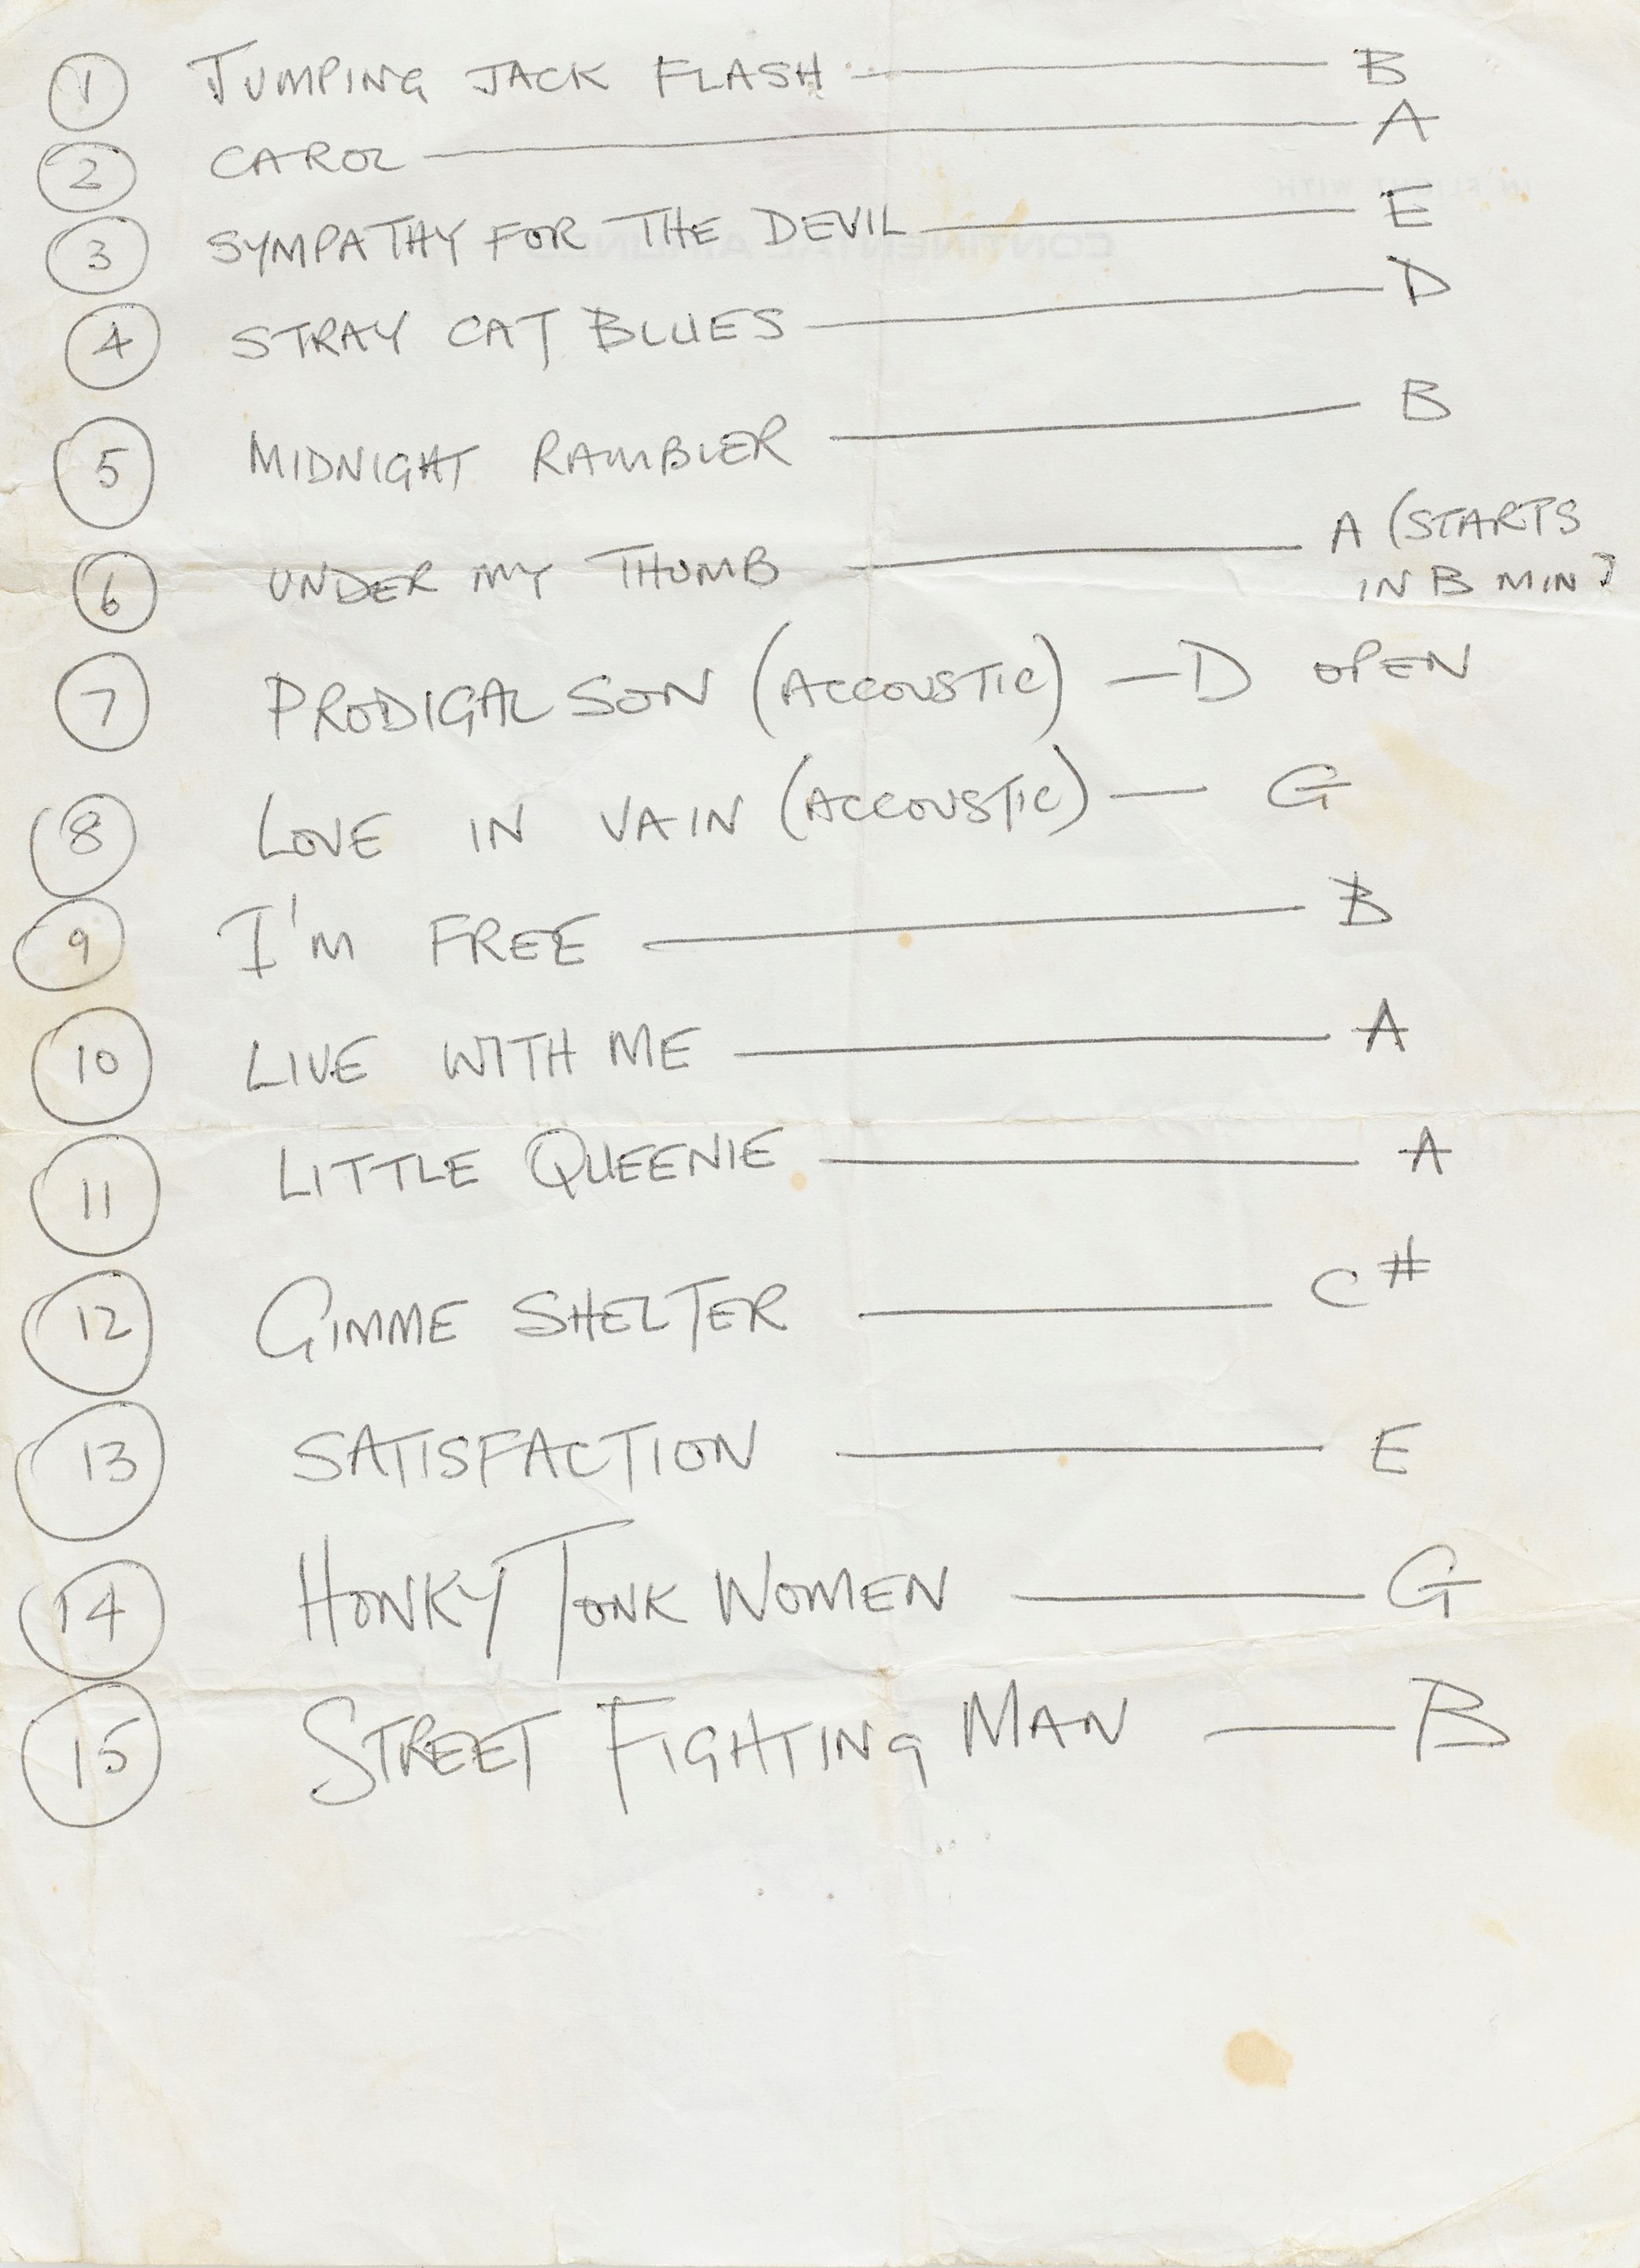 1 JUMPING JACK FLASH — B
2 CAROL — A
3 SYMPATHY FOR THE DEVIL — E
4 STRAY CAT BLUES — D
5 MIDNIGHT RAMBLER — B
6 UNDER MY THUMB — A (STARTS
IN B MIN)
7 PRODIGAL SON (ACCOUSTIC) — D OPEN
8 LOVE IN VAIN (ACCOUSTIC) — G
9 I'M FREE — B
10 LIVE WITH ME — A
11 LITTLE QUEENIE — A
12 GIMME SHELTER — C#
13 SATISFACTION — E
14 HONKY TONK WOMEN — G
15 STREET FIGHTING MAN — B
IN FLIGHT WITH
CONTINENTAL AIRLINES